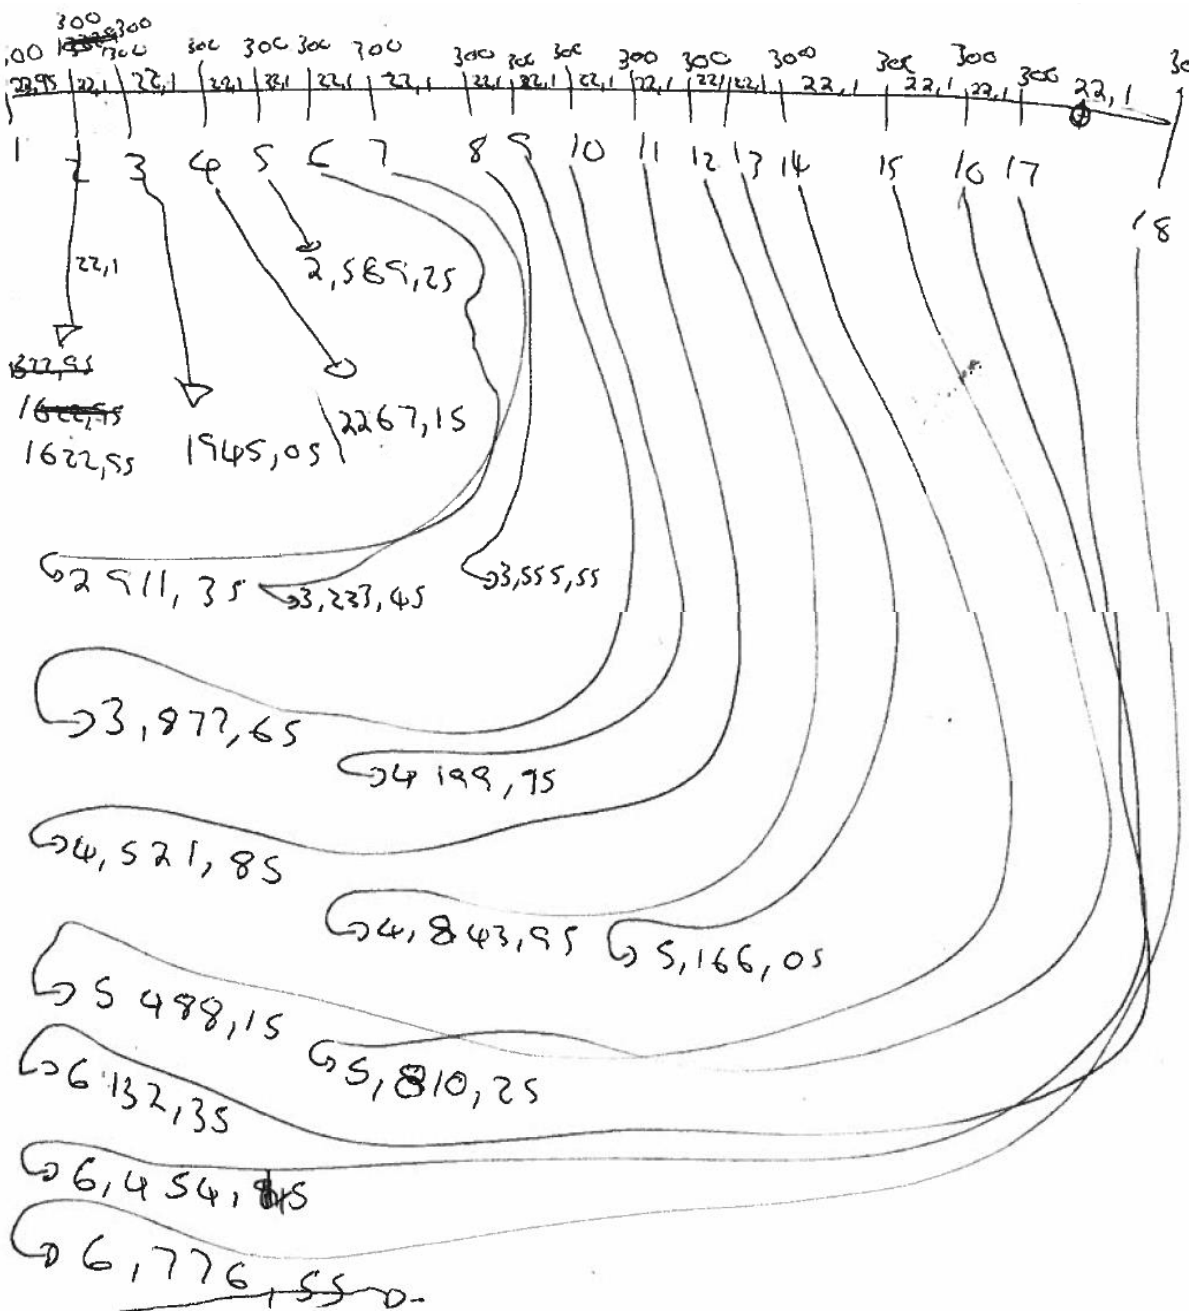 300
,00 300 300 300 300 300 700 300 300 300 300 300 3000 300 300 300 30
22,95 22,1 22,1 22,1 22,1 22,1 22,1 22,1 22,1 22,1 22,1 22,1 22,1 22,1 22,1 22,1 22,1
1 2 3 4 5 6 7 8 9 10 11 12 13 14 15 16 17
18
22,1
2,589,25
1622,95
1622,95
1622,95 1945,05 2267,15
2911,35 3,233,45 3,555,55
3,877,65
4199,75
4,521,85
4,843,95 5,166,05
5488,15
5,810,25
6132,35
6,454,45
6,776,55